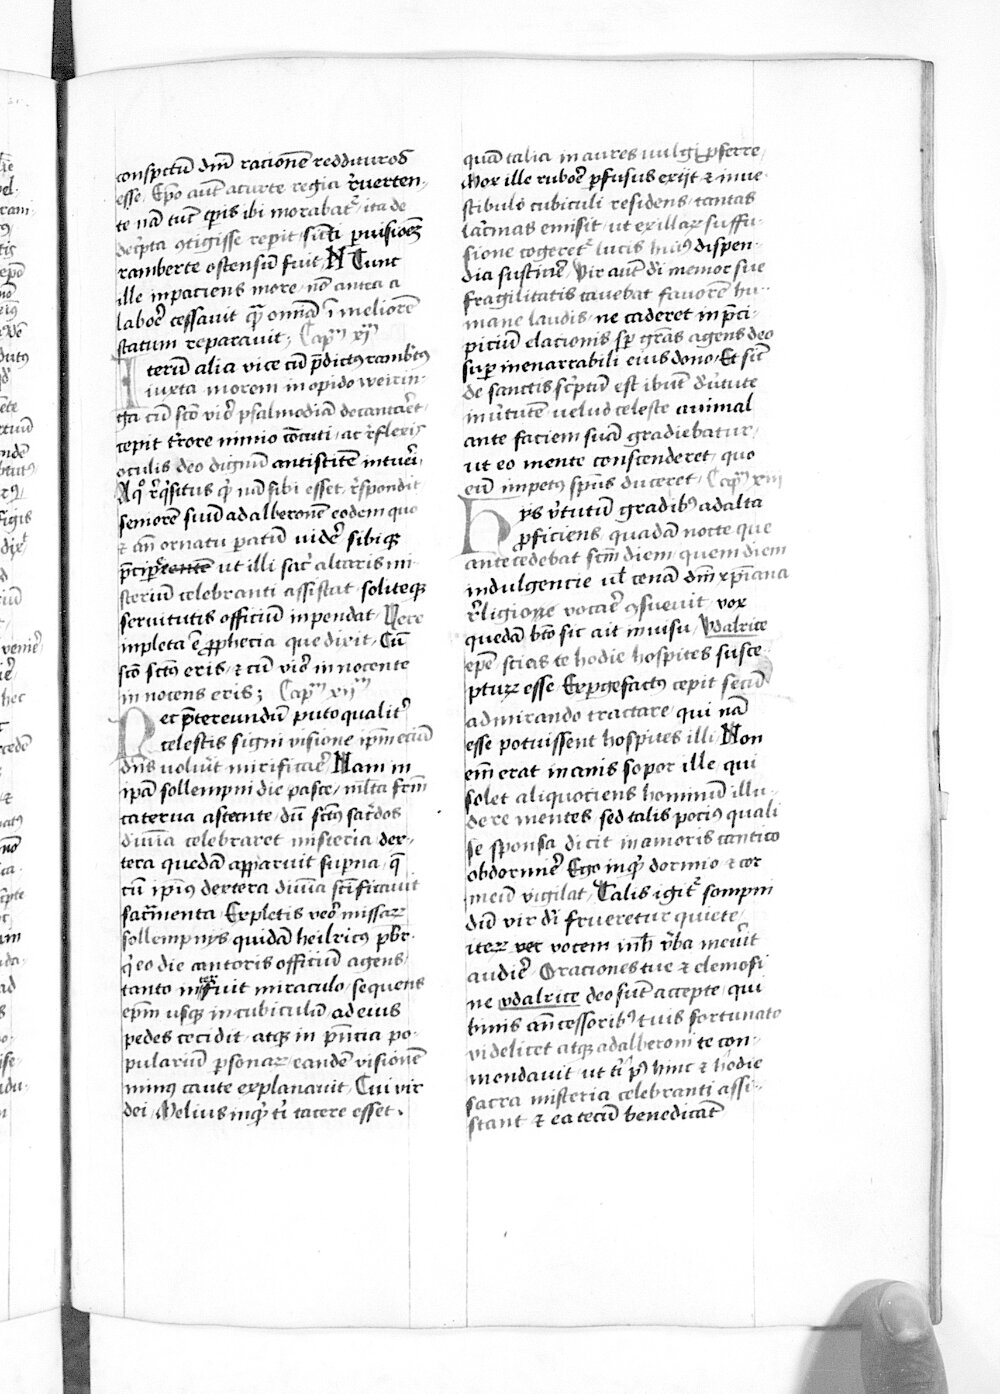 conspectū dm̄ racionē reddituros
esse / Ep̄o aūt a curte regia reuerten-
te nā tūc ip̄is ibi morabat᷑ / ita de
ꝯtigisse rep̄it / sicti puisiōeꝫ
ramberte ostensū fuit / Tunc
ille inpaciens more / nō antea a
labore cessauit q̄ om̄ia ī meliorē
statum reparauit / Capᵐ xjᵐ
Iterū alia vice cū p̄dictus rambtus
iuxta morem in opido weirin-
ga cū sc̄o viro psalmodiā decantaret /
cepit t̄rore nimio cōcuti / ac reflexis
oculis deo dignū antistitē intueri /
A quo reqisitus qͥ nā sibi esset / respondit
seniorē suū adalberonē eodem quo
⁊ an̄ ornatu p̄catū videre sibiqꝫ
p̄cip̄e ut illi sacri altaris mi-
sterium celebranti assistat soliteqꝫ
seruitutis officiū inpendat / Vere
inpleta ē ꝓphecia que dixit / Cū
sc̄o sctūs eris / ⁊ cū viro innocente
innocens eris ; Capᵐ xijᵐ
Nec p̄tereundū puto qualiter
celestis signi visione ip̄m eciā
dn̄s voluit mirificare / Nam in
ipā sollempni die pasce / ml̄ta frm̄
caterua astante / dū sctūs sacerdos
diuīa celebraret misteria dex-
tera quedā apparuit superna / q̄
cū ip̄ius dextera diuīa sc̄ificauit
sacramenta / Expletis vero missaꝝ
sollempnijs quidā heilricus pbr̄
qͥ eo die cantoris officiū agens /
tanto int̄fuit miraculo / sequens
ep̄m usqꝫ in cubiculū / ad eius
pedes cecidit / atqꝫ in p̄ncia po-
pulariū ꝑsonaꝝ / eandē visionē
minus caute explanauit / Cui vir
dei / Melius inquit tͥ tacere esset .
quā talia in aures uulgi ꝓferre /
Mox ille rubore ꝑfusus exijt ⁊ in ue-
stibulo cubiculi residens / tantas
lacrimas emisit / ut ex illaꝝ suffu-
sione cogeret᷑ lucis huius dispen-
dia sustinere / Vir aūt di memor sue
fragilitatis cauebat fauorē hu-
mane laudis / ne caderet in p̄ci-
piciū elacionis / sꝫ grās agens deo
suꝑ inenarrabili eius dono / Et sicut
de sanctis scͥptū est ibūt de v̓tute
in v̓tutē / uelud celeste animal
ante faciem suā gradiebatur /
ut eo mente conscenderet / quo
eū impetus sp̄us duceret / Capᵐ xiij
Hijs v̓tutū gradibus ad alta
ꝓficiens / quadā nocte que
antecedebat scm̄ diem / quem diem
indulgencie vl̓ cenā dm̄ xp̄iana
religione vocare ꝯsueuit / vox
quedā bt̄o sic ait in uisu / Vdalrice
ep̄e / scias te hodie hospites susce-
pturꝝ esse / Expergefactus cepit secū
admirando tractare / qui nā
esse potuissent hospites illi / Non
em̄ erat inanis sopor ille / qui
solet aliquociens hominū illu-
dere mentes / sed talis pocius quali
se sponsa dicit in amoris cantico
obdormire / Ego inquit dormio ⁊ cor
meū vigilat / Talis igit᷑ sompni
dū vir di frueretur quiete /
iteꝝ vocem in hͨ v̓ba meruit
audire / Oraciones tue ⁊ elemosi-
ne vdalrice deo sūt accepte / qui
binis an̄cessoribus tuis fortunato
videlicet atqꝫ adalberoni te con-
mendauit / ut tͥ hinc ⁊ hodie
sacra misteria celebranti assi-
stant ⁊ ea tecū benedicāt